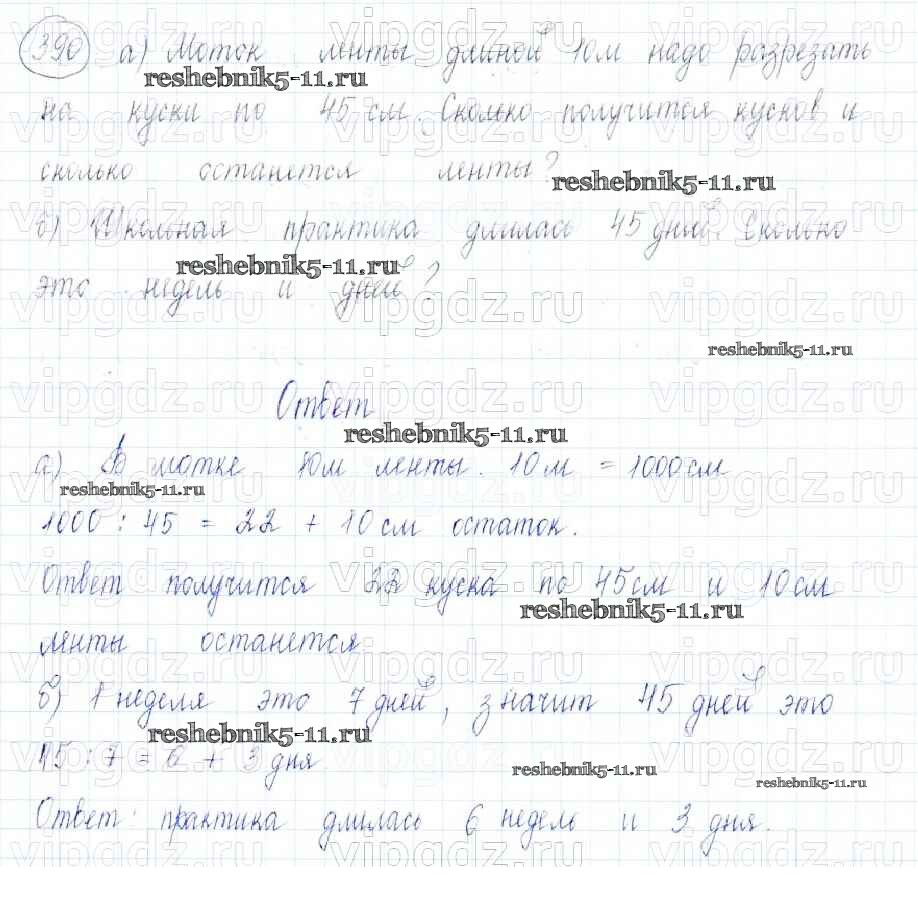 390 а) Моток ленты длиной 10м надо разрезать
reshebnik5-11.ru
на куски по 45 см. Сколько получится кусков и
сколько останется ленты?
reshebnik5-11.ru
б) Школьная практика длилась 45 дней. Сколько
reshebnik5-11.ru
это недель и дней?
reshebnik5-11.ru
Ответ
reshebnik5-11.ru
а) В мотке 10м ленты. 10м = 1000см
reshebnik5-11.ru
1000 : 45 = 22 + 10 см остаток.
Ответ получится 22 куска по 45см и 10см
reshebnik5-11.ru
ленты останется
б) 1 неделя это 7 дней, значит 45 дней это
reshebnik5-11.ru
45 : 7 = 6 + 3 дня
reshebnik5-11.ru
reshebnik5-11.ru
Ответ: практика длилась 6 недель и 3 дня.
vipgdz.ru